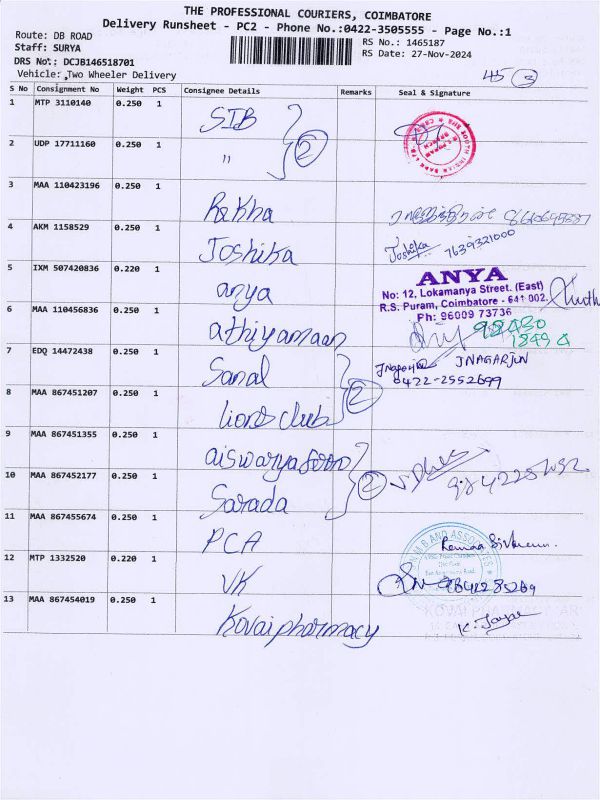 THE PROFESSIONAL COURIERS, COIMBATORE
Delivery Runsheet - PC2 - Phone No.:0422-3505555 - Page No.:1
Route: DB ROAD
RS No.: 1465187
Staff: SURYA
RS Date: 27-Nov-2024
DRS No.: DCJB146518701
Vehicle: Two Wheeler Delivery
45 3
S No Consignment No Weight PCS Consignee Details Remarks Seal & Signature
1 MTP 3110140 0.250 1 STB
2
2 UDP 17711160 0.250 1 "
3 MAA 110423196 0.250 1 Rekha
4 AKM 1158529 0.250 1 Joshika Joshika 7639321000
5 IXM 507420836 0.220 1 anya
ANYA
No: 12, Lokamanya Street. (East)
R.S. Puram, Coimbatore - 641 002.
Ph: 96009 73736
6 MAA 110456836 0.250 1 athiyamaan 98430
18494
7 EDQ 14472438 0.250 1 Sanal JNAGARJUN
0422-2552699
2
8 MAA 867451207 0.250 1 lions club
9 MAA 867451355 0.250 1 aiswarya
2
10 MAA 867452177 0.250 1 Sarada
11 MAA 867455674 0.250 1 PCA
AND ASSOCIATES
12 MTP 1332520 0.220 1 VK
13 MAA 867454019 0.250 1 Kovai pharmacy